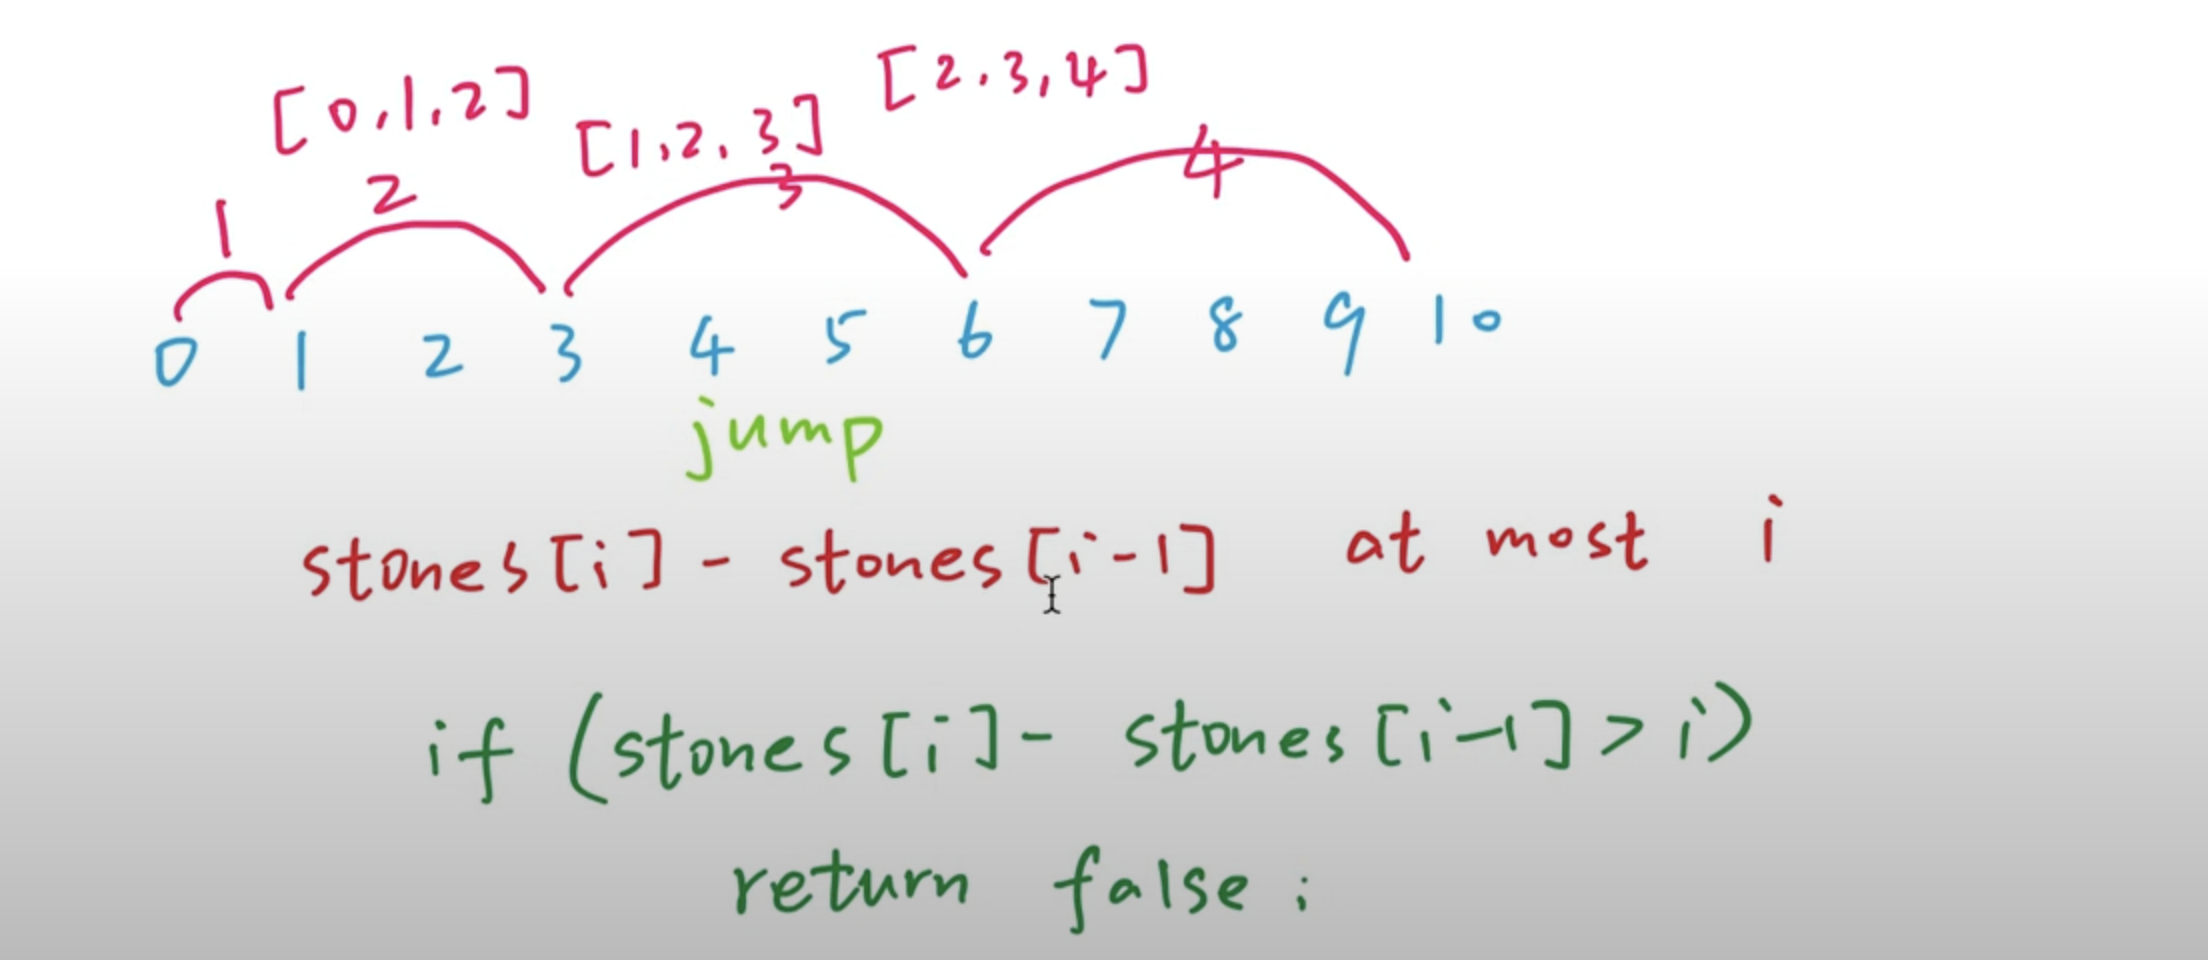 [0,1,2] [1,2,3] [2,3,4]
1 2 3 4
0 1 2 3 4 5 6 7 8 9 10
jump
stones[i] - stones[i-1] at most i
if (stones[i] - stones[i-1] > i)
return false;